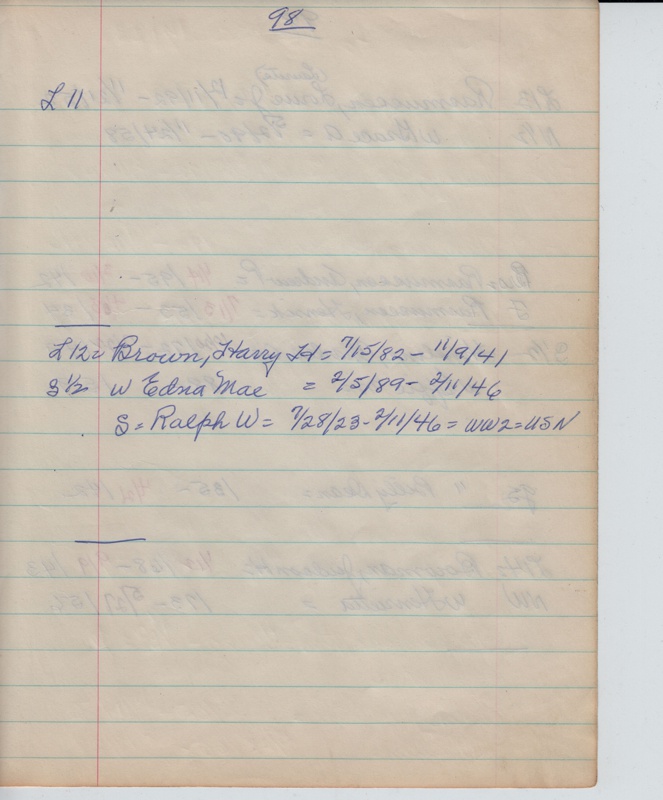 98
L 11
L12= Brown, Harry H = 7/15/82 - 11/9/41
S 1/2 W Edna Mae = 2/5/89 - 2/11/46
S = Ralph W = 7/28/23 - 2/11/46 = WW2 = USN